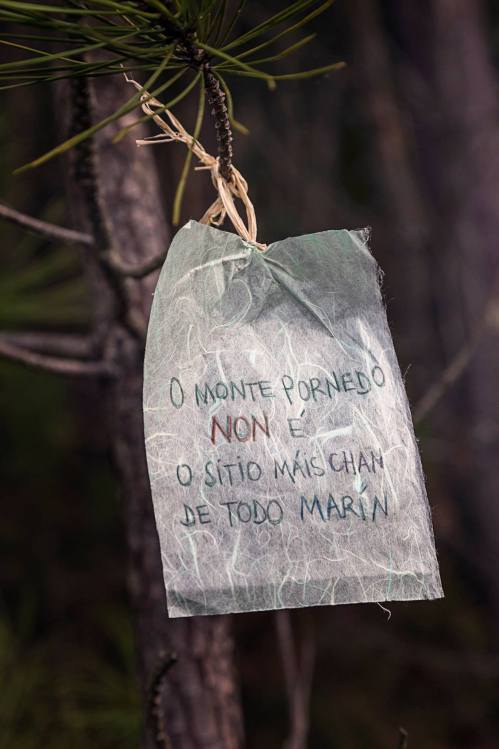 O MONTE PORNEDO
NON É
O SÍTIO MÁIS CHAN
DE TODO MARÍN